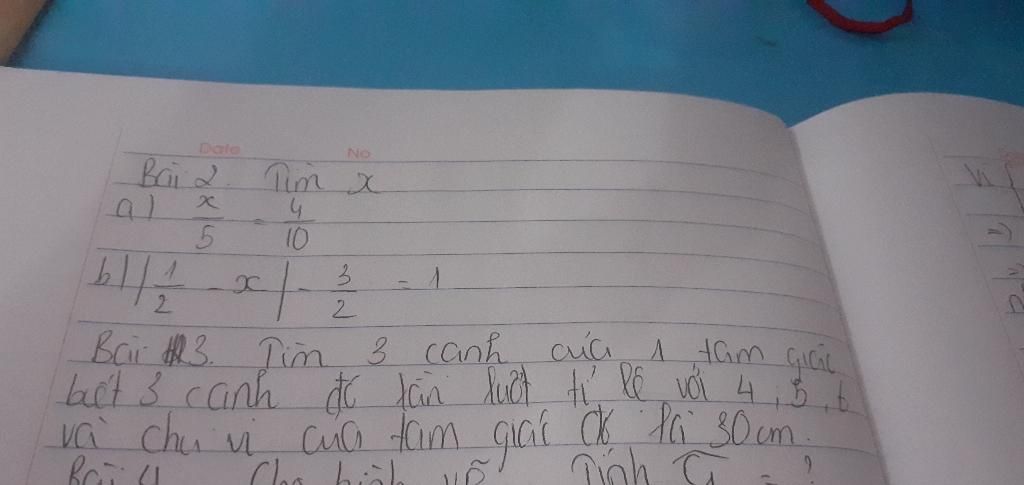 Date No
Bài 2. Tìm x
a) x/5 = 4/10
b) |1/2 - x| - 3/2 = 1
Bài 3. Tìm 3 cạnh của 1 tam giác
biết 3 cạnh đó lần lượt tỉ lệ với 4, 5, 6
và chu vi của tam giác đó là 30 cm.
Bài 4. Cho hình vẽ Tính = ?